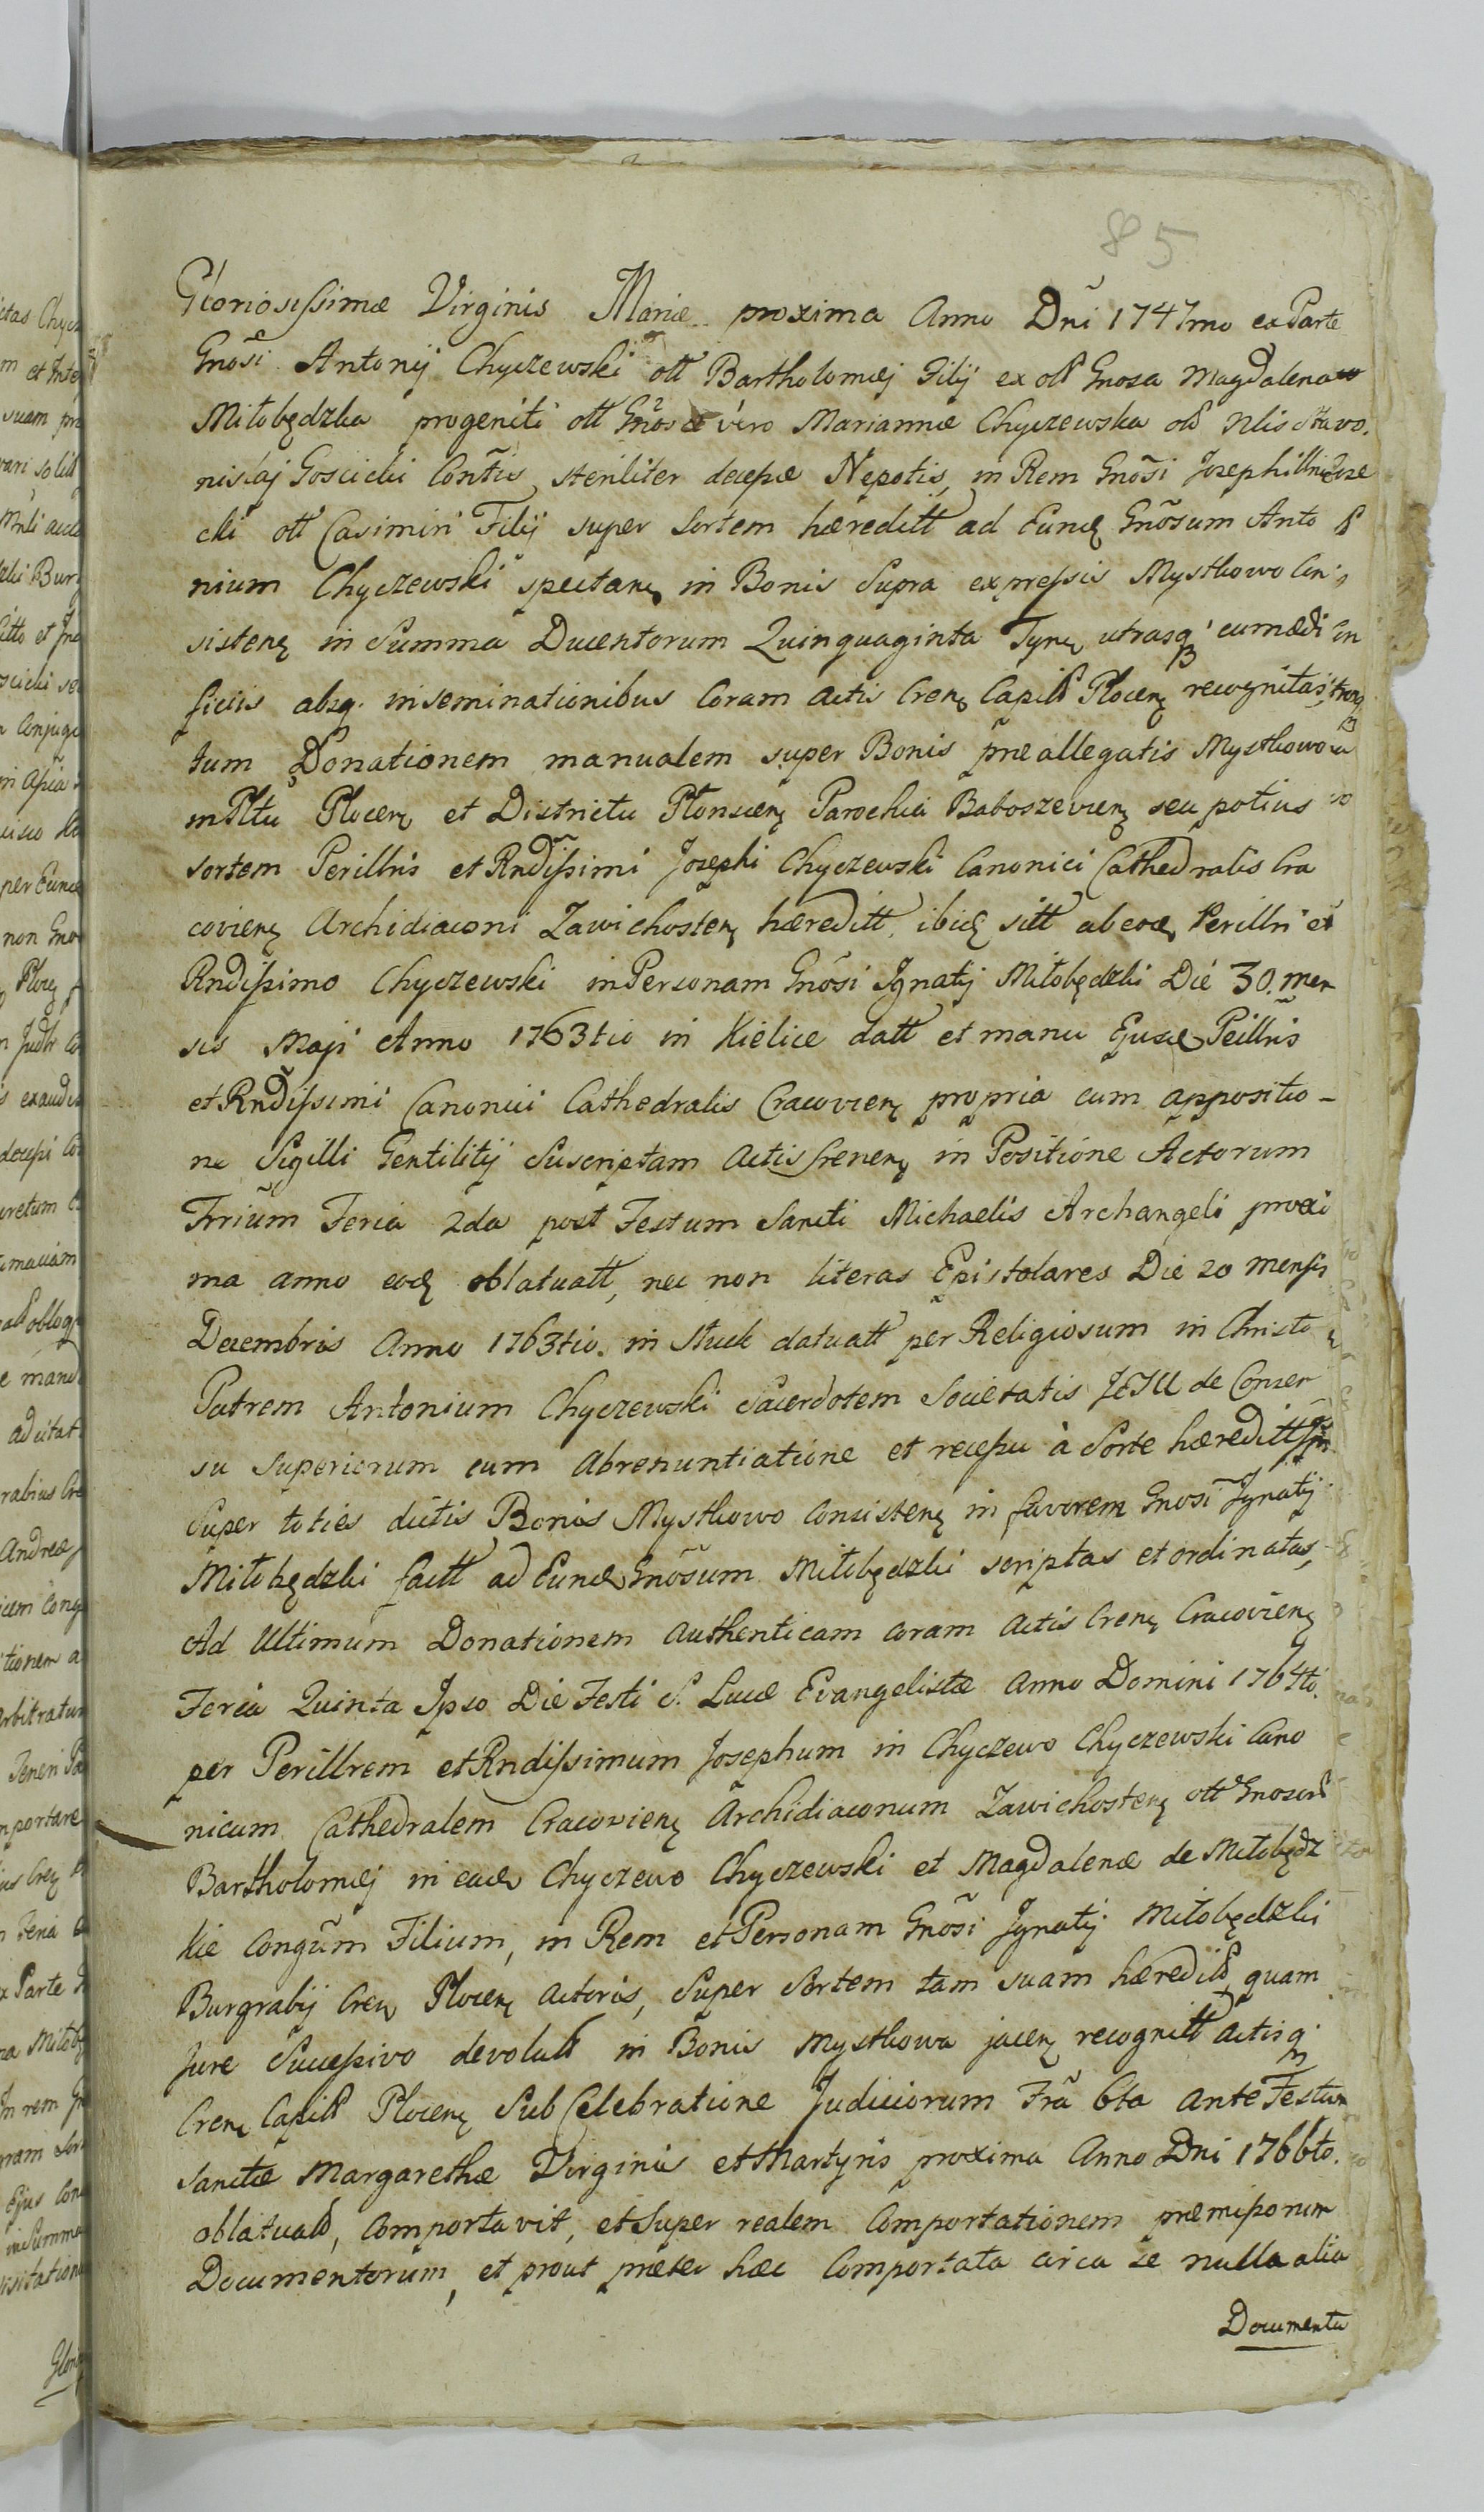 85
Gloriosissimæ Virginis Mariæ proxima Anno Dñi 1747mo ex Parte
Gnosi Antonij Chyczewski olt Bartholomæj Filij ex olt Gnosa Magdalena
Miłobędzka progeniti olt Gnosæ vero Mariannæ Chyczewska olt Nlis Stawo
nisłaj Goscicki Contis steriliter decessæ Nepotis, in Rem Gnõsi Josephi
cki olt Casimiri Filij super Sortem hæreditt ad Eund Gnõsum Anto
nium Chyczewski spectanę in Bonis Supra expressis Mystkowo Con
sistenę in Summa Ducentorum Quinquaginta Tynę utrasq cum ædi
ficiis absq. inseminationibus Coram Actis Crenę Capitt Plocenę recognitas,
tum Donationem manualem super Bonis præallegatis Mystkowo
in Pltu Plocenę et Districtu Płonscenę Parochia Baboszevienę seu potius
sortem Perillris et Rndissimi Josephi Chyczewski Canonici Cathedralis Cra
covienę Archidiaconi Zawichostenę hæreditt, ibid sitt ab eod Perillri et
Rndissimo Chyczewski in Personam Gnõsi Ignatij Miłobędzki Die 30. men
sis Maji Anno 1763tio in Kielice datt et manu Ejusd Peillris
et Rndissimi Canonici Cathedralis Cracovienę propria cum appositio-
ne Sigilli Gentilitij Suscriptam Actis Crenenę in Positione Actorum
Trrium Feria 2da post Festum Sancti Michaelis Archangeli proxi
ma anno eod oblatuatt, nec non literas Epistolares Die 20 Mensis
Decembris Anno 1763tio. in Stuck datuatt per Religiosum in Christo
Patrem Antonium Chyczewski Sacerdotem Societatis JESU de Consen
su Superiorum cum Abrenuntiatione et recessu à Sorte hæreditt
Super toties dictis Bonis Mystkowo Consistenę in favorem Gnosi Ignatij
Miłobędzki factt ad Eund Gnõsum Miłobędzki scriptas et ordinatas,
Ad Ultimum Donationem Authenticam coram Actis Crenę Cracovienę
Feria Quinta Ipso Die Festi S. Lucæ Evangelistæ Anno Domini 1764to.
per Perillrem et Rndissimum Josephum in Chyczewo Chyczewski Cano
nicum Cathedralem Cracovienę Archidiaconum Zawichostenę olt Gnosor
Bartholomæj in ead Chyczewo Chyczewski et Magdalenæ de Miłobędz
kie Congũm Filium, in Rem et Personam Gnõsi Ignatij Miłobędzki
Burgrabij Crenę Plocenę Actoris, Super Sortem tam suam hæreditt, quam
Jure Successivo devolutt in Bonis Mystkowa jacenę recognitt Actisq.
Crenę Capitt Plocenę Sub Celebratione Judiciorum Fra 6ta Ante Festum
Sanctæ Margarethæ Virginis et Martyris proxima Anno Dni 1766to.
oblatuatt, Comportavit, et Super realem Comportationem præmissorum
Documentorum, et prout præter hæc Comportata circa se nulla alia
Documenta